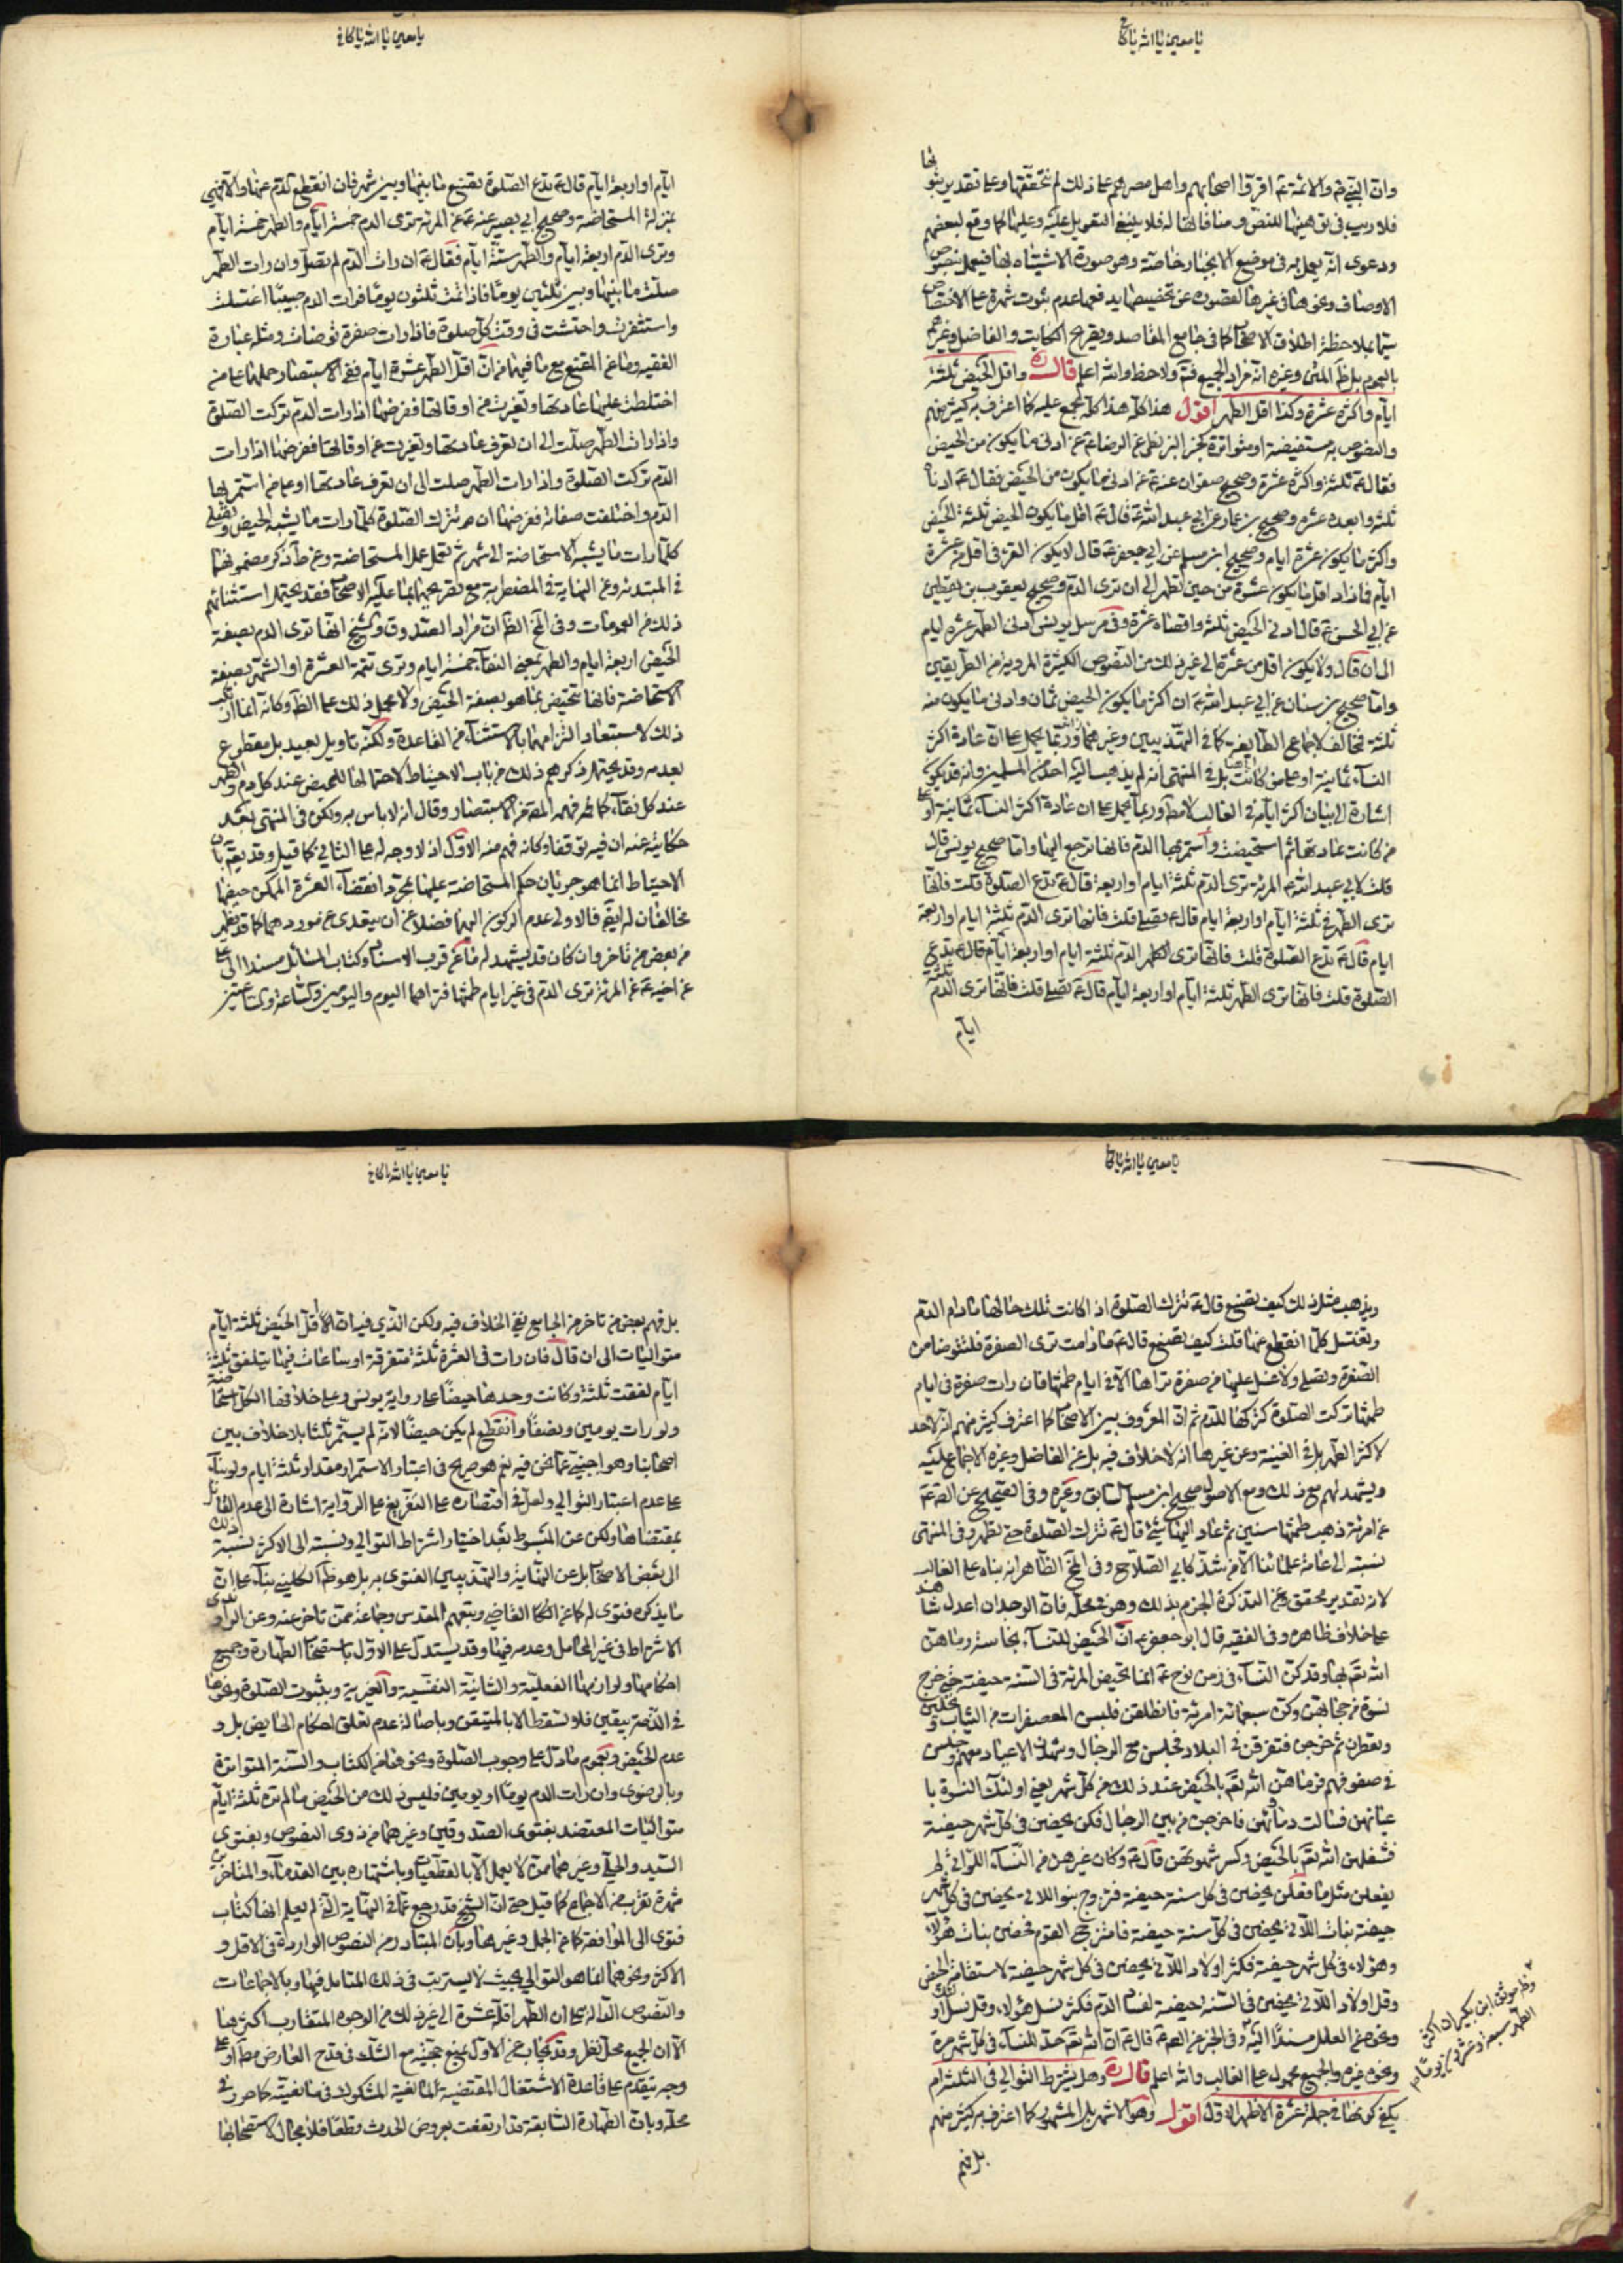 يا معين يا الله يا كافي
وان النبي ص والائمة ع اقروا اصحابهم واهل مصرهم على ذلك لم نتحققها وعلى تقدير
فلا ريب في للنص ومنافاتها له فلا ينبغي التعويل عليه وعليها كما وقع لبعضهم
ودعوى انه يعمل به في موضع الاخبار خاصة وهو صورة الاشتباه بها فيعمل بنصوص
الاوصاف وعن غيرها لقصوره عن تخصيصها يدفعها عدم ثبوت شهرة على الاختصاص
سيما بملاحظة اطلاق الاصحاب كما في جامع المقاصد وتصريح والفاضل وغيرهم
بالعموم بل ظ المتن وغيره انه مراد الجميع فتم ولاحظ والله اعلم قال ره واقل الحيض ثلثة
ايام واكثره عشرة وكذا اقل الطهر اقول هذا كله هذا كله مجمع عليه كما اعترف به كثير منهم
والنصوص به مستفيضة او متواترة كخبر البزنطي عن الرضا ع عن ادنى ما يكون من الحيض
فقال ع ثلثة واكثره عشرة وصحيح صفوان عنه ع عن ادنى ما يكون من الحيض فقال ع ادناه
ثلثة وابعده عشره وصحيح بن عمار عن ابي عبد الله ع قال ع اقل ما يكون الحيض ثلثة الحيض
واكثر ما يكون عشرة ايام وصحيح ابن مسلم عن ابي جعفر ع قال لا يكون القرء في اقل من عشرة
ايام فما زاد اقل ما يكون عشرة من حين تطهر الى ان ترى الدم وصحيح يعقوب بن يقطين
عن ابي الحسن ع قال ادنى الحيض ثلثة واقصاه عشرة وفي مرسل يونس ادنى الطهر عشرة ايام
الى ان قال ولا يكون اقل من عشرة الى غير ذلك من النصوص الكثيرة المروية من الطريقين
واما صحيح بن سنان عن ابي عبد الله ع ان اكثر ما يكون الحيض ثمان وادنى ما يكون منه
ثلثة فمخالف لاجماع الطايفة كما في التهذيبين وغيرهما وربما يحمل على ان عادة اكثر
النساء ثمانية او على من كانت بل في المنتهى انه لم يذهب اليه احد من المسلمين وانه قد يكون
اشارة الى بيان اكثر ايامه في الغالب لا مط وربما يحمل على ان عادة اكثر النساء ثمانية او على
من كانت عادتها ثم استحيضت واستمر بها الدم فانها ترجع اليها واما صحيح يونس قال
قلت لابي عبد الله ع المرئة ترى الدم ثلثة ايام او اربعة قال ع تدع الصلوة قلت فانها
ترى الطهر ثلثة ايام او اربعة ايام قال ع تصلي قلت فانها ترى الدم ثلثة ايام او اربعة
ايام قال ع تدع الصلوة قلت فانها ترى الطهر الدم ثلثة ايام او اربعة ايام قال ع تدع
الصلوة قلت فانها ترى الطهر ثلثة ايام او اربعة ايام قال ع تصلي قلت فانها ترى الدم ثلثة
ايام
يا معين يا الله يا كافي
ايام او اربعة ايام قال ع تدع الصلوة تصنع ما بينها وبين شهر فان انقطع الدم عنها والا فهي
بمنزلة المستحاضة وصحيح ابي بصير عنه ع عن المرئة ترى الدم خمسة ايام والطهر خمسة ايام
وترى الدم اربعة ايام والطهر ستة ايام فقال ع ان رات الدم لم تصل وان رات الطهر
صلت ما بينها وبين ثلثين يوما فاذا تمت ثلثون يوما فرات الدم صبيبا اغتسلت
واستثفرت واحتشت في وقت كل صلوة فاذا رات صفرة توضات ومثله عبارة
الفقيه وما عن المقنع مع ما فيهما من ان اقل الطهر عشرة ايام ففي الاستبصار حملها على من
اختلطت عليها عادتها وتغيرت عن اوقاتها ففرضها اذا رات الدم تركت الصلوة
واذا رات الطهر صلت الى ان تعرف عادتها وتغيرت عن اوقاتها ففرضها اذا رات
الدم تركت الصلوة واذا رات الطهر صلت الى ان تعرف عادتها او على من استمر بها
الدم واختلفت صفاته ففرضها ان تترك الصلوة كلما رات ما يشبه الحيض وتصلي
كلما رات ما يشبه الاستحاضة الى شهر ثم تعمل عمل المستحاضة وعن ط ذكر مضمونها
في المبتدئة وعن النهاية في المضطربة مع تصريحهما بما عليه الاصحاب فقد يحتمل استثنائهم
ذلك من العمومات وفي الظ ان مراد الصدوق والشيخ انها ترى الدم بصفة
الحيض اربعة ايام والطهر بمعنى النقاء خمسة ايام وترى تتمة العشرة او الشهر بصفة
الاستحاضة فانها تتحيض بما هو بصفة الحيض ولا يحمل ذلك على الظ وكانه انما ارتكب
ذلك لاستبعاد التزامهما بالاستثناء من القاعدة ولكنه تاويل بعيد بل مقطوع
بعدمه وقد يحتمل ذكرهم ذلك من باب الاحتياط لاحتمالها للحيض عند كل دم والطهر
عند كل نقاء كما فهمه عن الاستبصار وقال انه لا باس به ولكن في المنتهى بعد
حكايته عنه ان فيه توقفا وكانه فهم منه الاول اذ لا وجه له على الثاني كما قيل وقد
الاحتياط انما هو جريان حكم المستحاضة عليها بمجرد انقضاء العشرة الممكن حيضا
مخالفان له ايضا فالاولى عدم الركون اليهما فضلا عن ان يتعدى عن موردهما كما قد يظهر
من بعض من تاخر وان كان قد يشهد له ما عن قرب الاسناد وكتاب المسائل مسندا الى علي
عن اخيه ع عن المرئة ترى الدم في غير ايام طمثها فتراها اليوم واليومين والساعة والساعتين
يا معين يا الله يا كافي
ويذهب مثل ذلك كيف تصنع قال ع تترك الصلوة اذا كانت تلك حالها ما دام الدم
وتغتسل كلما انقطع عنها قلت كيف تصنع قال ع ما دامت ترى الصفرة فلتتوضا من
الصفرة وتصلي ولا غسل عليها من صفرة تراها الا في ايام طمثها فان رات صفرة في ايام
طمثها تركت الصلوة كتركها للدم ثم ان المعروف بين الاصحاب كما اعترف كثير منهم انه لا حد
لاكثر الطهر بل في الغنية وعن غيرها انه لا خلاف فيه بل عن الفاضل وغيره الاجماع عليه
ويشهد لهم مع ذلك ومع الاصول صحيح ابن مسلم السابق وغيره وفي الصحيح عن
عن امرئة ذهب طمثها سنين ثم عاد اليها شيئ قال ع تترك الصلوة حتى تطهر وفي المنتهى
نسبته الى عامة علمائنا الا من شذ كابي الصلاح وفي الظاهر انه بناه على الغالب
لانه تقدير محقق وعن التذكرة الجزم بذلك وهو في محله فان الوجدان اعدل شاهد
على خلاف ظاهره وفي الفقيه قال ابو جعفر ع ان الحيض للنساء نجاسة رماهن
الله تعم بها وقد كن النساء في زمن نوح ع انما تحيض المرئة في السنة حيضة حتى خرج
نسوة من حجابهن وكن سبعمائة امرئة فانطلقن فلبسن المعصفرات من الثياب وتحلين
وتعطرن ثم خرجن فتفرقن في البلاد فجلسن مع الرجال وشهدن الاعياد معهم وجلسن
في صفوفهم فرماهن الله تعم بالحيض عند ذلك في كل شهر يعني اولئك النسوة با
عيانهن فسالت دماؤهن فاخرجن من بين الرجال فكن يحضن في كل شهر حيضة
فشغلهن الله تعم بالحيض وكسر شهوتهن قال ع وكان غيرهن من النساء اللواتي لم
يفعلن مثل ما فعلن يحضن في كل سنة حيضة فتزوج بنو اللاتي يحضن في كل شهر
حيضة بنات اللاتي يحضن في كل سنة حيضة فامتزج القوم فحضن بنات هؤلاء
وهؤلاء في كل شهر حيضة فكثر اولاد اللاتي يحضن في كل شهر حيضة لاستقامة الحيض
وقل اولاد اللاتي يحضن في السنة حيضة لفساد الدم فكثر نسل هؤلاء وقل نسل اولئك
ونحوه عن العلل مسندا اليه وفي الخبر عن قال ع ان الله تعم حد للنساء في كل شهر مرة
ونحوه غيره والجميع محمول على الغالب والله اعلم قال ره وهل يشترط التوالي في الثلثة ام
يكفي كونها في جملة عشرة الاظهر الاول اقول وهو الاشهر بل المشهور كما اعترف به كثير منهم
بل فهم
وفي موثق ابن بكير ان اكثر
الطهر سبعة وعشرين يوما
يا معين يا الله يا كافي
بل فهم بعض من تاخر من الجامع نفي الخلاف فيه ولكن الذي فيه ان اقل الحيض ثلثة ايام
متواليات الى ان قال فان رات في العشرة ثلثة متفرقة او ساعات فيها يتلفق ثلثة
ايام لفقت ثلثة وكانت وحدها حيضا على رواية يونس وعلى خلافها الكل استحاضة
ولو رات يومين ونصفا وانقطع لم يكن حيضا لانه لم يستمر ثلثا بلا خلاف بين
اصحابنا وهو اجنبي عما نحن فيه نعم هو صريح في اعتبار الاستمرار مقدار ثلثة ايام ولو بناء
على عدم اعتبار التوالي ولعل في اقتصاره على التفريع على الرواية اشارة الى عدم القائل
بمقتضاها ولكن عن المبسوط بعد اختيار اشتراط التوالي ونسبته الى الاكثر نسبة ذلك
الى بعض الاصحاب بل عن النهاية والتهذيبين الفتوى به بل هو ظ الكليني بناء على ان
ما يذكره فتوى له كما عن القاضي وتبعهم المقدس وجماعة ممن تاخر عنه وعن الراوندي
الاشتراط في غير الحامل وعدمه فيها وقد يستدل على الاول باستصحاب الطهارة وجميع
احكامها ولوازمها الفعلية والشانية النفسية والغيرية وبثبوت الصلوة ونحوها
في الذمة بيقين فلا تسقط الا بالمتيقن وباصالة عدم تعلق احكام الحايض بل و
عدم الحيض وبعموم ما دل على وجوب الصلوة ونحوها من الكتاب والسنة المتواترة
وبالرضوي وان رات الدم يوما او يومين فليس ذلك من الحيض ما لم تره ثلثة ايام
متواليات المعتضد بفتوى الصدوقين وغيرهما من ذوي النصوص وبفتوى
السيد والحلي وغيرهما ممن لا يعمل الا بالقطعيات وباشتهاره بين القدماء والمتاخرين
شهرة تقرب من الاجماع كما قيل حتى ان الشيخ قد رجع عما في النهاية التي لم يعلم انها كتاب
فتوى الى الموافقة كما عن الجمل وغيرها وبان المتبادر من النصوص الواردة في الاقل و
الاكثر ونحوهما انما هو التوالي بحيث لا يستريب في ذلك المتامل فيها وبالاجماعات
والنصوص الدالة على ان الطهر اقله عشرة الى غير ذلك من الوجوه المتقارب اكثرها
الا ان الجميع محل نظر وقد يجاب عن الاول بمنع حجيته مع الشك في قدح العارض مط او على
وجه يتقدم على قاعدة الاشتغال المقتضية لمانعية المشكوك في مانعيته كما حرر في
محله وبان الطهارة السابقة قد ارتفعت بعروض الحدث قطعا فلا مجال لاستصحابها